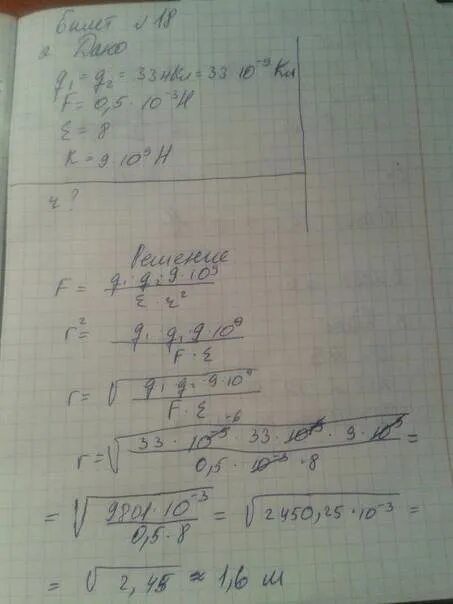 Билет №18
2. Дано
q₁ = q₂ = 33 нКл = 33·10⁻⁹ Кл
F = 0,5·10⁻³ Н
ε = 8
K = 9·10⁹ Н
r ?
Решение
F = q₁·q₂·9·10⁹ / ε·r²
r² = q₁·q₂·9·10⁹ / F·ε
r = √(q₁·q₂·9·10⁹ / F·ε)
r = √(33·10⁻⁹·33·10⁻⁹·9·10⁹ / 0,5·10⁻³·8) =
= √(9801·10⁻³ / 0,5·8) = √(2450,25·10⁻³) =
= √2,45 ≈ 1,6 м